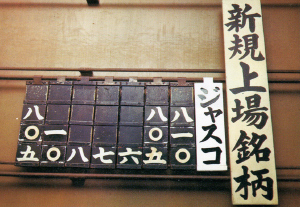 新規上場銘柄
ジャスコ
八一〇
八〇五
六
七
八
一〇
八〇五